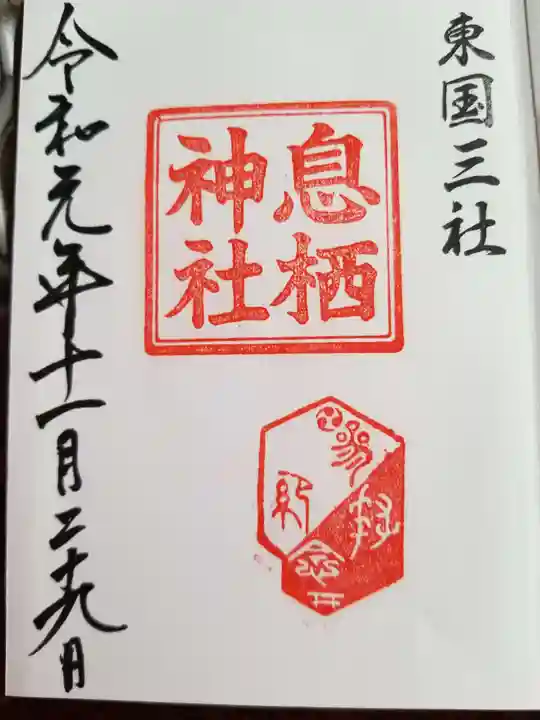 東国三社
息栖
神社
令和元年十一月二十九日